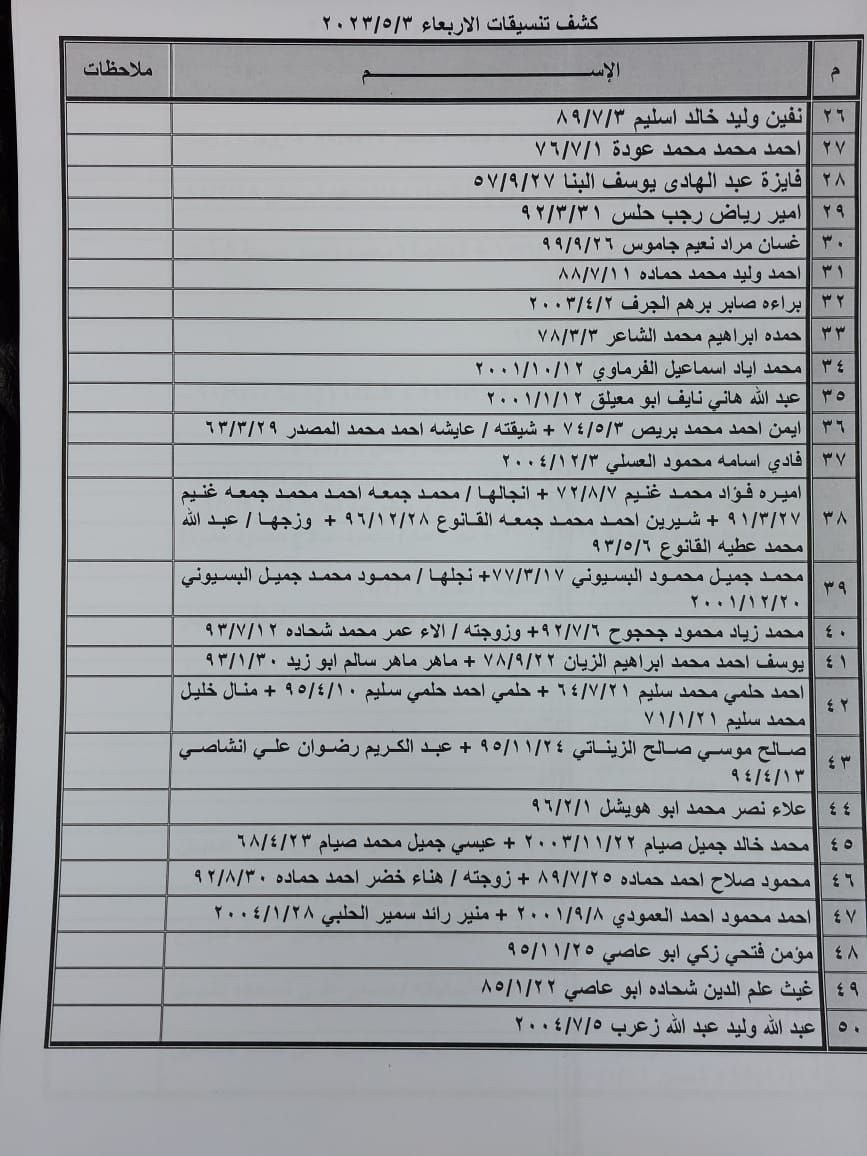 كشف تنسيقات الاربعاء ٢٠٢٣/٥/٣
م الإســـــم ملاحظات
٢٦ نفين وليد خالد اسليم ٨٩/٧/٣
٢٧ احمد محمد محمد عودة ٧٦/٧/١
٢٨ فايزة عبد الهادى يوسف البنا ٥٧/٩/٢٧
٢٩ امير رياض رجب حلس ٩٢/٣/٣١
٣٠ غسان مراد نعيم جاموس ٩٩/٩/٢٦
٣١ احمد وليد محمد حماده ٨٨/٧/١١
٣٢ براءه صابر برهم الجرف ٢٠٠٣/٤/٢
٣٣ حمده ابراهيم محمد الشاعر ٧٨/٣/٣
٣٤ محمد اياد اسماعيل الفرماوي ٢٠٠١/١٠/١٢
٣٥ عبد الله هاني نايف ابو معيلق ٢٠٠١/١/١٢
٣٦ ايمن احمد محمد بريص ٧٤/٥/٣ + شيقته / عايشه احمد محمد المصدر ٦٣/٣/٢٩
٣٧ فادي اسامه محمود العسلي ٢٠٠٤/١٢/٣
اميره فؤاد محمد غنيم ٧٢/٨/٧ + انجالها / محمد جمعه احمد محمد جمعه غنيم
٣٨ ٩١/٣/٢٧ + شيرين احمد محمد جمعه القانوع ٩٦/١٢/٢٨ + وزجها / عبد الله
محمد عطيه القانوع ٩٣/٥/٦
٣٩ محمد جميل محمود البسيوني ٧٧/٣/١٧+ نجلها / محمود محمد جميل البسيوني
٢٠٠١/١٢/٢٠
٤٠ محمد زياد محمود جحجوح ٩٢/٧/٦+ وزوجته / الاء عمر محمد شحاده ٩٣/٧/١٢
٤١ يوسف احمد محمد ابراهيم الزيان ٧٨/٩/٢٢ + ماهر ماهر سالم ابو زيد ٩٣/١/٣٠
٤٢ احمد حلمي محمد سليم ٦٤/٧/٢١ + حلمي احمد حلمي سليم ٩٥/٤/١٠ + منال خليل
محمد سليم ٧١/١/٢١
٤٣ صالح موسي صالح الزيناتي ٩٥/١١/٢٤ + عبد الكريم رضوان علي انشاصي
٩٤/٤/١٣
٤٤ علاء نصر محمد ابو هويشل ٩٦/٢/١
٤٥ محمد خالد جميل صيام ٢٠٠٣/١١/٢٢ + عيسي جميل محمد صيام ٦٨/٤/٢٣
٤٦ محمود صلاح احمد حماده ٨٩/٧/٢٥ + زوجته / هناء خضر احمد حماده ٩٢/٨/٣٠
٤٧ احمد محمود احمد العمودي ٢٠٠١/٩/٨ + منير رائد سمير الحلبي ٢٠٠٤/١/٢٨
٤٨ مؤمن فتحي زكي ابو عاصي ٩٥/١١/٢٥
٤٩ غيث علم الدين شحاده ابو عاصي ٨٥/١/٢٢
٥٠ عبد الله وليد عبد الله زعرب ٢٠٠٤/٧/٥